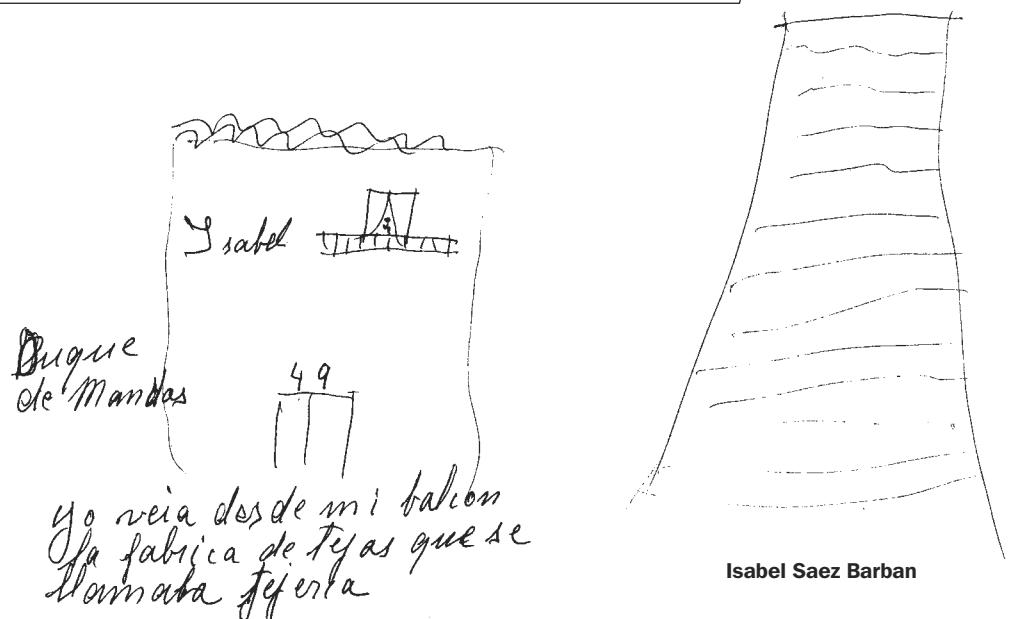 Isabel
Duque
de Mandas
49
yo veia desde mi balcon
la fabrica de tejas que se
llamaba tejeria
Isabel Saez Barban